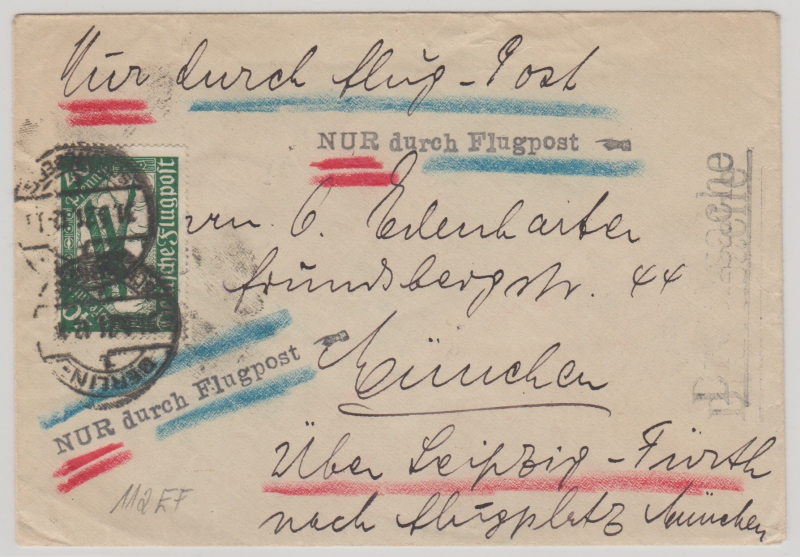 Nur durch Flug-Post
NUR durch Flugpost
Herrn C. Edenharter
Frundsbergstr. 44
München
Über Leipzig-Fürth
nach Flugplatz München
NUR durch Flugpost
Deutsche Flugpost
BERLIN
Drucksache
112 EF